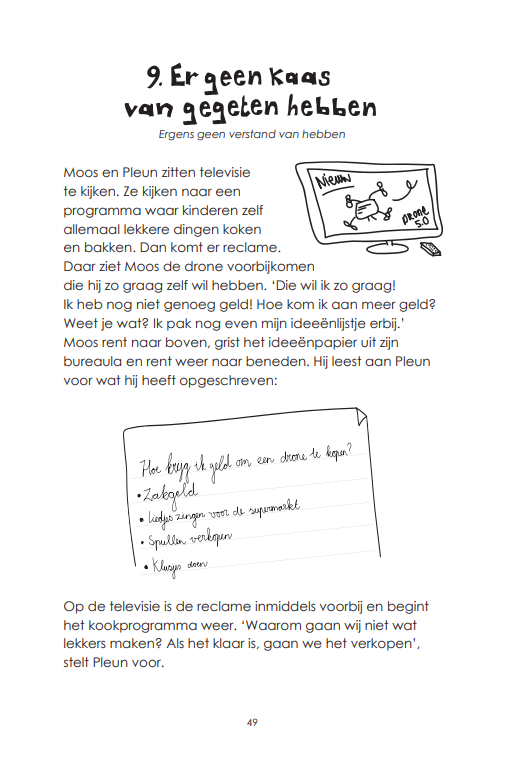 9. Er geen kaas
van gegeten hebben
Ergens geen verstand van hebben
Moos en Pleun zitten televisie
te kijken. Ze kijken naar een
programma waar kinderen zelf
allemaal lekkere dingen koken
en bakken. Dan komt er reclame.
Daar ziet Moos de drone voorbijkomen
die hij zo graag zelf wil hebben. ‘Die wil ik zo graag!
Ik heb nog niet genoeg geld! Hoe kom ik aan meer geld?
Weet je wat? Ik pak nog even mijn ideeënlijstje erbij.’
Moos rent naar boven, grist het ideeënpapier uit zijn
bureaula en rent weer naar beneden. Hij leest aan Pleun
voor wat hij heeft opgeschreven:
NIEUW
DRONE
5.0
Hoe krijg ik geld om een drone te kopen?
• Zakgeld
• Liedjes zingen voor de supermarkt
• Spullen verkopen
• Klusjes doen
Op de televisie is de reclame inmiddels voorbij en begint
het kookprogramma weer. ‘Waarom gaan wij niet wat
lekkers maken? Als het klaar is, gaan we het verkopen’,
stelt Pleun voor.
49